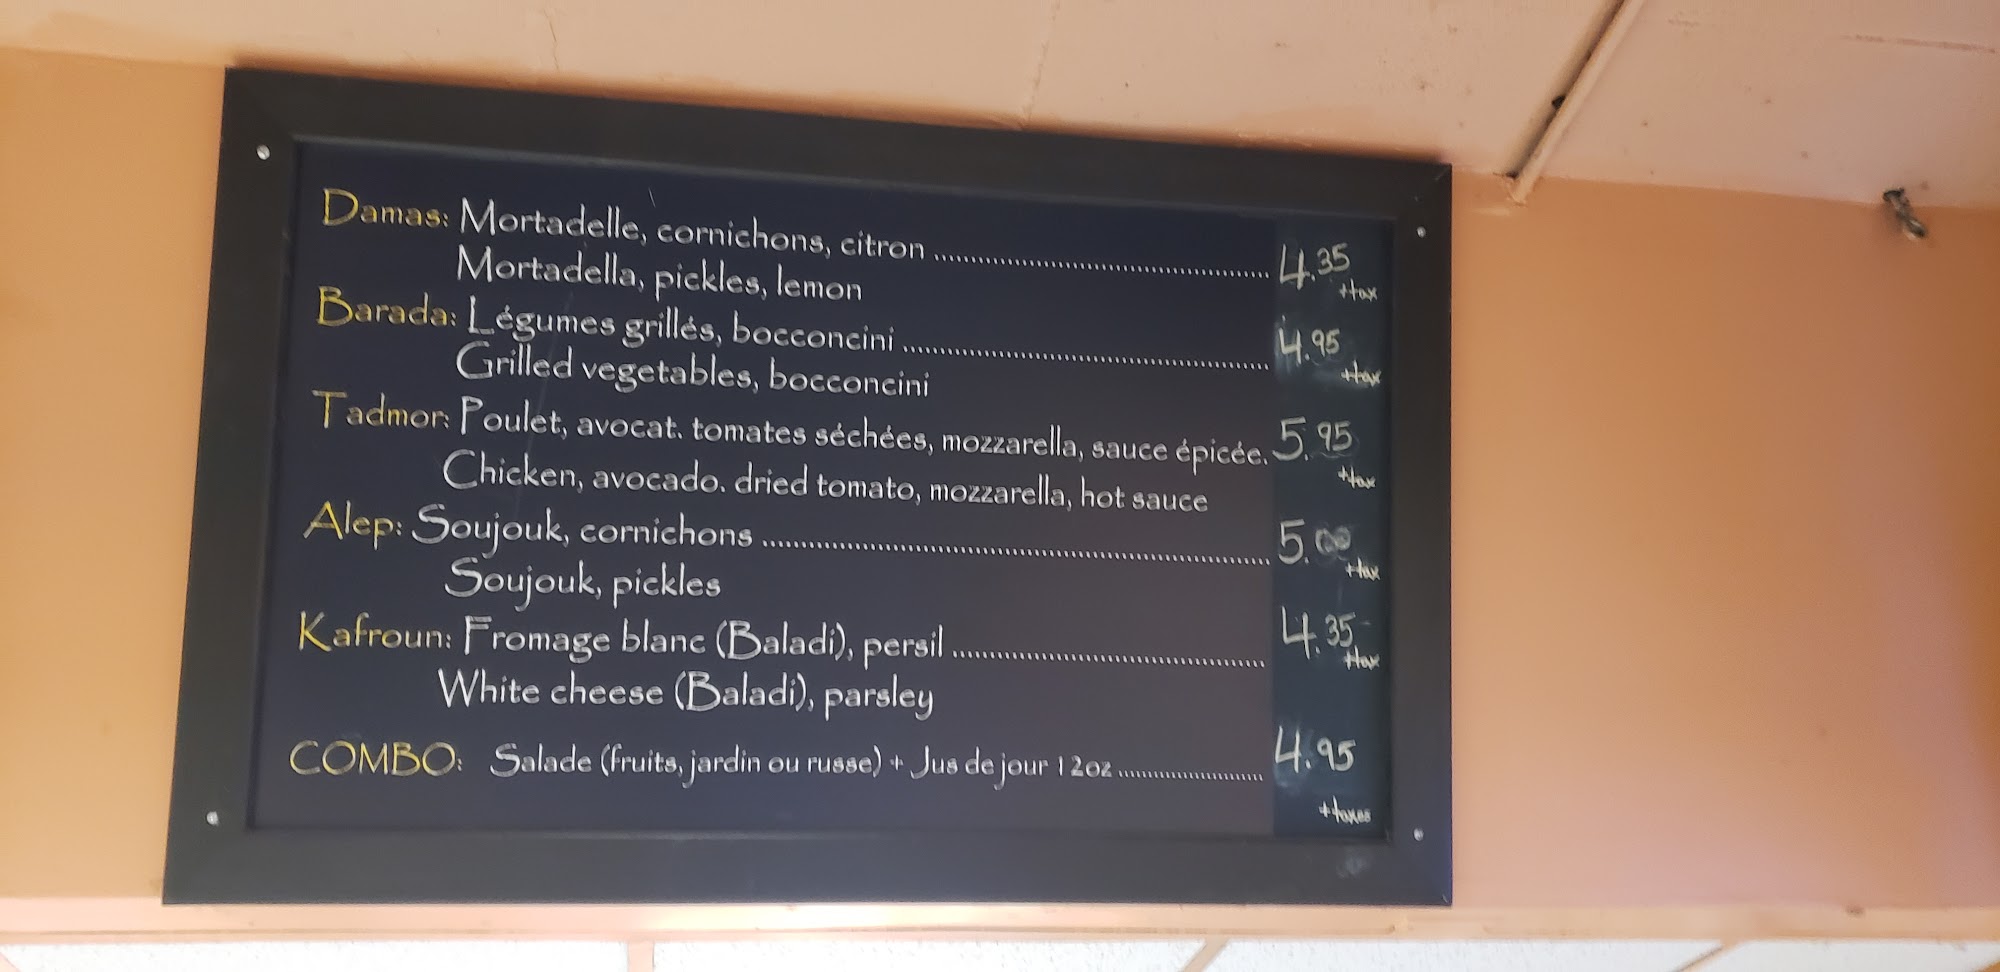 Damas: Mortadelle, cornichons, citron ........................................ 4.35
+tax
Mortadella, pickles, lemon
Barada: Légumes grillés, bocconcini ........................................ 4.95
+tax
Grilled vegetables, bocconcini
Tadmor: Poulet, avocat. tomates séchées, mozzarella, sauce épicée. 5.95
+tax
Chicken, avocado. dried tomato, mozzarella, hot sauce
Alep: Soujouk, cornichons ........................................ 5.00
+tax
Soujouk, pickles
Kafroun: Fromage blanc (Baladi), persil ........................................ 4.35
+tax
White cheese (Baladi), parsley
COMBO: Salade (fruits, jardin ou russe) + Jus de jour 12oz .................... 4.95
+taxes